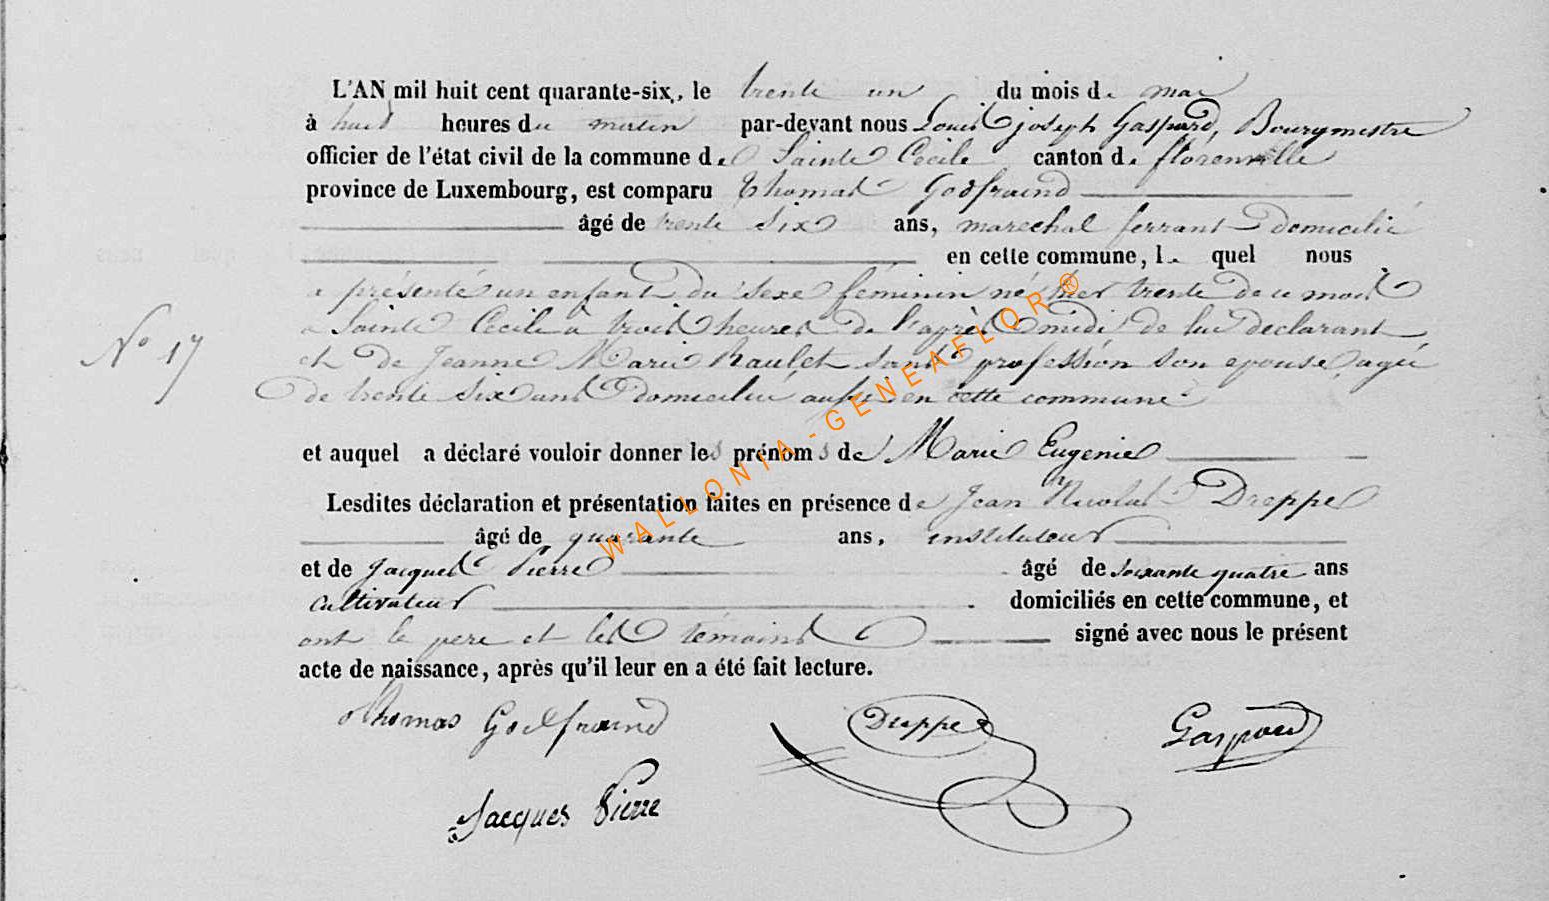 L'AN mil huit cent quarante-six, le trente un du mois de mai
à huit heures du matin par-devant nous Louis joseph Gaspard, Bourgmestre
officier de l'état civil de la commune de Sainte Cecile canton de florenville
province de Luxembourg, est comparu Thomas Godfraind
âgé de trente six ans, marechal ferrant domicilié
en cette commune, le quel nous
a présenté un enfant du sexe féminin né hier trente de ce mois
a Sainte Cecile a trois heures de l'après midi de lui declarant
N° 17
et de Jeanne Marie Raulet sans profession son epouse, agée
de trente six ans domiciliée aussi en cette commune
et auquel a déclaré vouloir donner les prénoms de Marie Eugenie
Lesdites déclaration et présentation faites en présence de Jean Nicolas Dreppe
âgé de quarante ans, instituteur
et de Jacques Pierre âgé de soixante quatre ans
cultivateur domiciliés en cette commune, et
ont le pere et les témoins signé avec nous le présent
acte de naissance, après qu'il leur en a été fait lecture.
Thomas Godfraind Dreppe Gaspard
Jacques Pierre
WALLONIA-GENEAFLOR®